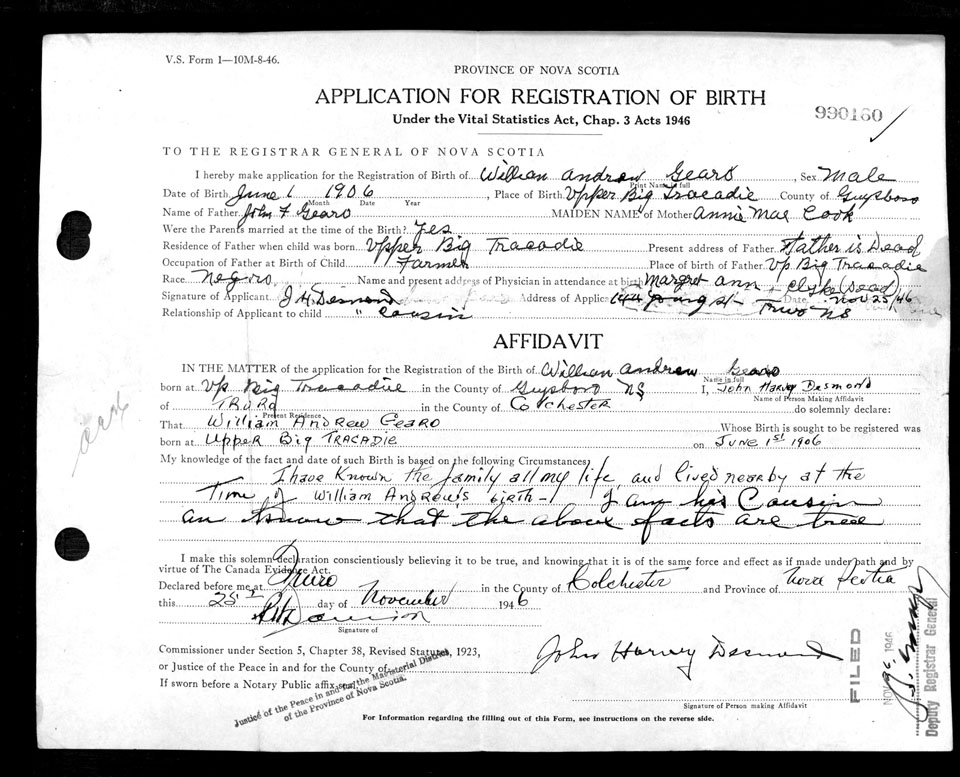 V.S. Form 1—10M-8-46.
PROVINCE OF NOVA SCOTIA
APPLICATION FOR REGISTRATION OF BIRTH
Under the Vital Statistics Act, Chap. 3 Acts 1946
990160
TO THE REGISTRAR GENERAL OF NOVA SCOTIA
I hereby make application for the Registration of Birth of William Andrew Gearo, Sex Male
Print Name in full
Date of Birth June 1 1906, Place of Birth Upper Big Tracadie County of Guysboro
Month Date Year
Name of Father John F Gearo MAIDEN NAME of Mother Annie Mae Cook
Were the Parents married at the time of the Birth? Yes
Residence of Father when child was born Upper Big Tracadie Present address of Father Father is Dead
Occupation of Father at Birth of Child Farmer Place of birth of Father Up Big Tracadie
Race Negro Name and present address of Physician in attendance at birth Margret Ann Clyke (Dead)
Signature of Applicant J H Desmond Address of Applic 144 St Date Nov 25/46
Truro NS
Relationship of Applicant to child " Cousin
AFFIDAVIT
IN THE MATTER of the application for the Registration of Birth of William Andrew Gearo
Name in full
born at Up Big Tracadie in the County of Guysboro NS I, John Harvey Desmond
Name of Person Making Affidavit
of TRURO in the County of Colchester do solemnly declare:
Present Residence
That William Andrew Gearo Whose Birth is sought to be registered was
born at Upper Big Tracadie on June 1st 1906
My knowledge of the fact and date of such Birth is based on the following Circumstances
I have Known the family all my life, and lived nearby at the
Time of William Andrew's birth - I am his Cousin
an know that the above facts are true
I make this solemn declaration conscientiously believing it to be true, and knowing that it is of the same force and effect as if made under oath and by
virtue of The Canada Evidence Act.
Declared before me at Truro in the County of Colchester and Province of Nova Scotia
this 25th day of November 1946
Signature of
Commissioner under Section 5, Chapter 38, Revised Statutes, 1923,
or Justice of the Peace in and for the County of
If sworn before a Notary Public affix seal.
Justice of the Peace in and for the Magisterial District
of the Province of Nova Scotia.
John Harvey Desmond
Signature of Person making Affidavit
FILED
NOV 1946
Deputy Registrar General
For Information regarding the filling out of this Form, see instructions on the reverse side.